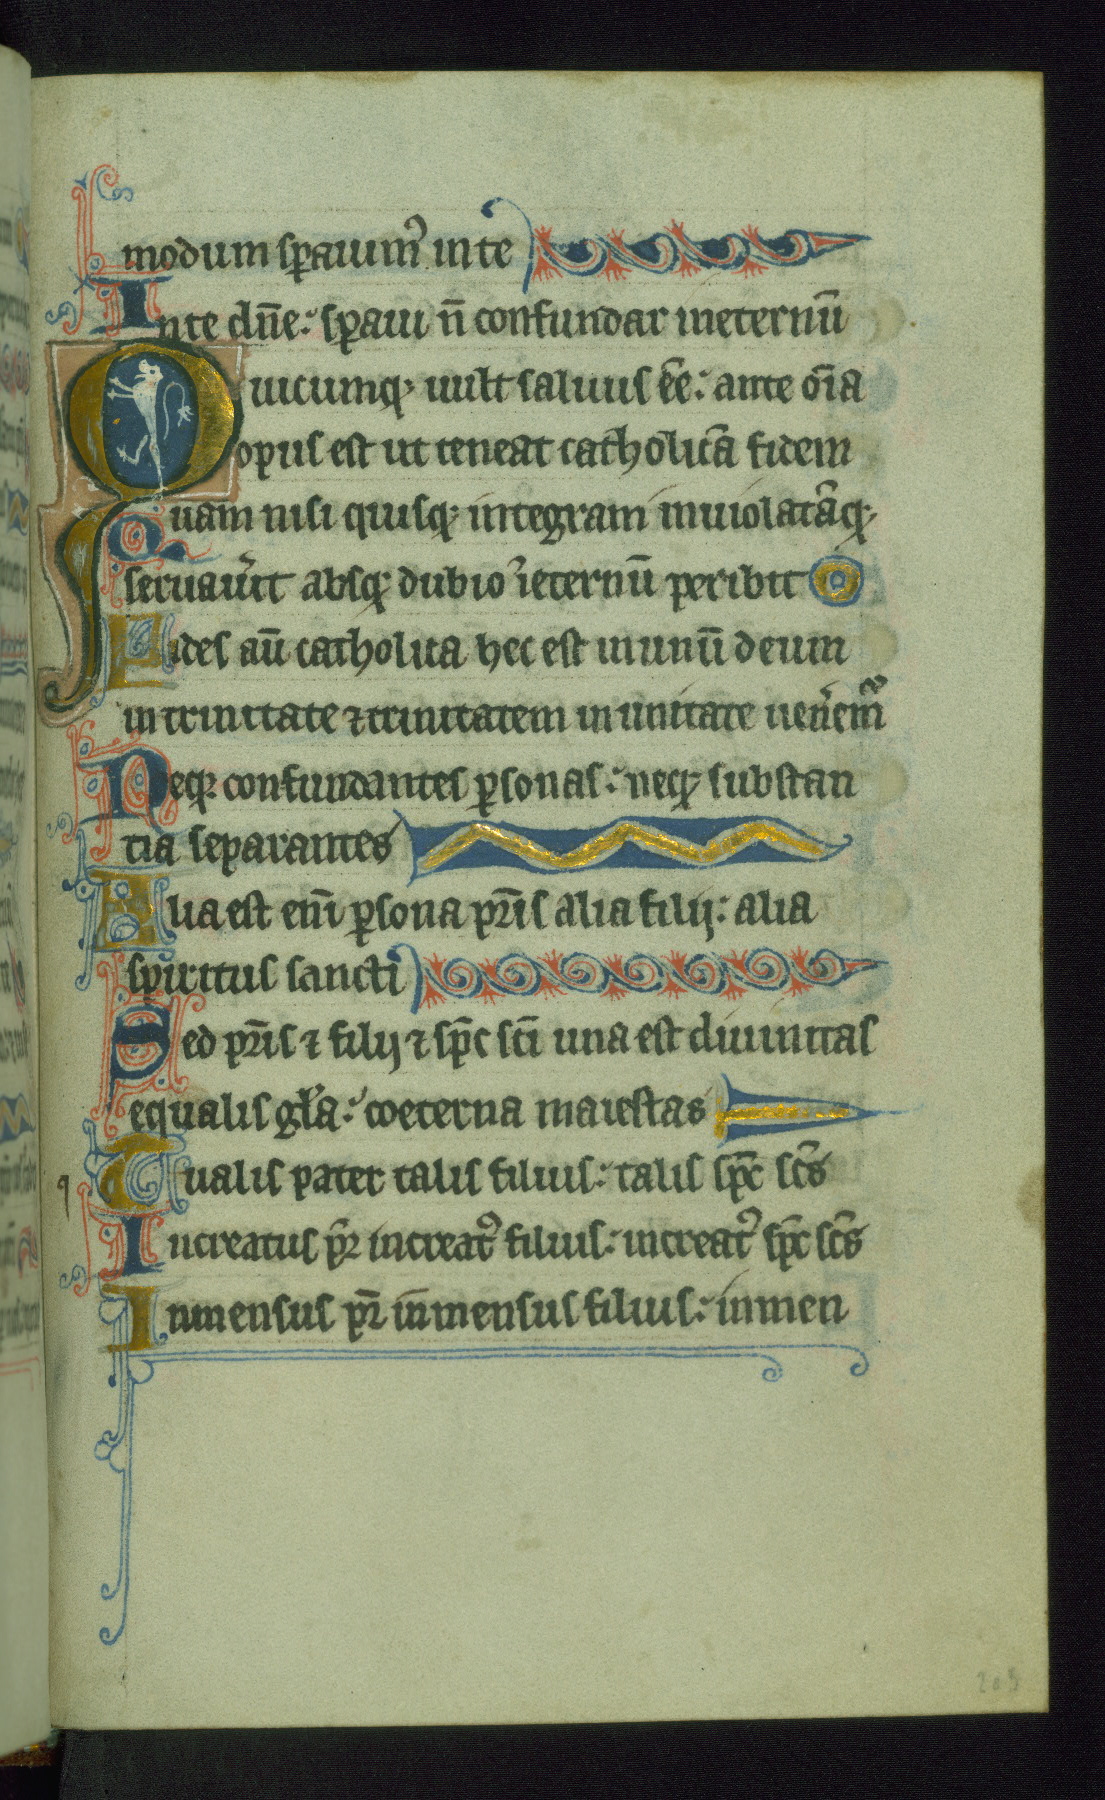 modum sp̄auimꝰ in te
In te dn̄e: sp̄aui n̄ confundar in eternū
Quicumqꝫ uult saluus ēē: ante oīa
opus est ut teneat catholicā fidem
Quam nisi quisqꝫ integram inuiolatāqꝫ
seruau̾it absqꝫ dubio i̾eternū peribit
Fides aū catholica hec est ut unū deum
in trinitate ⁊ trinitatem in unitate uen̾em̾
Neqꝫ confundantes ꝑsonas: neqꝫ substan
tia separantes
Alia est enī ꝑsona pr̄is alia filij: alia
spiritus sancti
Sed pr̄is ⁊ filij ⁊ sp̄c scī una est diuinitas
equalis gl̄a: coeterna maiestas
Qualis pater talis filius: talis sp̄c sc̄s
Increatus pr̄ increatꝰ filius: increatꝰ sp̄c sc̄s
Inmensus pr̄ inmensus filius: inmen
q
205